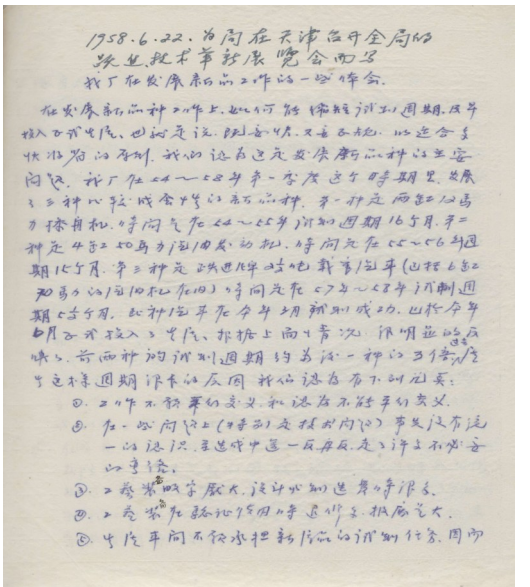 1958.6.22.为局在天津召开全局的
跃进技术革新展览会而写
我厂在发展新品工作的一些体会
在发展新品种工作上,如何能缩短试制週期,及早
投入正式生产、也就是说既要快、又要正规,以适合多
快好省的原则,我们认为这是发展新品种的主要
问题,我厂在54～58年第一季度这个时期里,发展
了三种比较成套性的新品种,第一种是两缸
力 机,时间是在54～55年试制週期16个月,第二
种是4缸50马力汽油发动机,时间是在55～56年週
期15个月,第三种是跃进牌2.5吨载重汽车(包括6缸
70马力的汽油机在内)时间是在57年～58年试制週
期5个月,此种汽车在今年 月试制成功,已於今年
6月正式投入了生产、根据上面情况,很明显的反
映了前两种的试制週期约为后一种的三倍,产
生这样週期很长的原因,我们认为有下列几点:
①. 工作不能平行交叉和认为不能平行交叉,
②. 在一些问题上(特别是技术问题)事先没有统
一的认识,至造成中途一反再反,走了许多不必要
的弯路。
③. 工艺装备数字庞大,设计制造费时很多,
④. 工艺装备在验证 时 多,报废 大,
⑤. 生产车间不能承担新产品的试制任务,因而